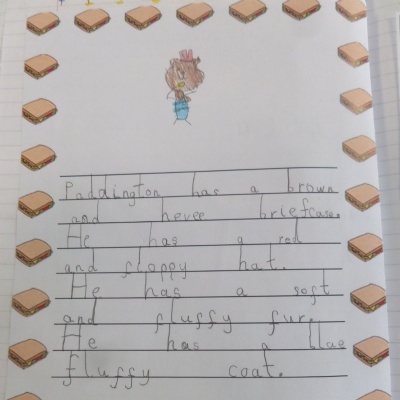 Paddington has a brown
and hevee briefcase.
He has a red
and floppy hat.
He has a soft
and fluffy fur.
He has a llue
fluffy coat.